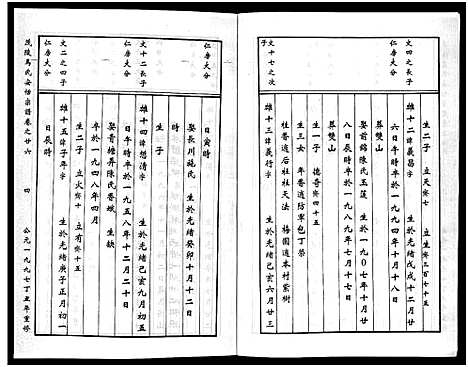 文四之次子
仁房大分
生二子　立天齊七　立生齊三百七十五
雄十二諱義昌字　生於光緒戊戌十二月廿
六日午時　卒於一九四二年十月十八日
葬雙山
娶前錦陳氏玉蓮　生於一九〇七年十月廿
八日辰時　卒於一九八九年七月十七日
葬雙山
生一子　德奇齊四十五
生三女　年香適防軍包丁榮
桂香適后社杜天法　梅園適本村紫樹
文十七之次子
仁房大分
雄十三諱義行字　生於光緒己亥六月廿三
日寅時
娶長川施氏　生於光緒癸卯十月十二日
時
生子
文十二長子
仁房大分
雄十四諱想清字　生於光緒己亥九月初五
日午時　卒於一九五八年十二月二十日
娶青塘弄陳氏香娥　生缺
卒於一九四八年四月
生二子　立火齊十　立有齊十五
文二之四子
仁房大分
雄十五諱子年字　生於光緒庚子正月初一
日辰時
茂陵馬氏安枋宗譜卷之廿六　四　公元一九九七丁丑年重修